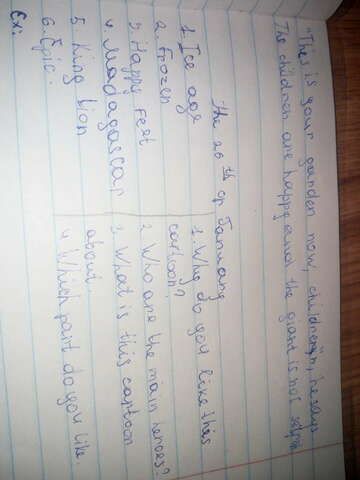 "This is your garden now, children", he says
The children are happy and the giant is not selfish
the 26th of January
1. Ice age
2. Frozen
3. Happy Feet
4. Madagascar
5. King Lion
6. Epic.
Ex:
1. Why do you like this
cartoon?
2. Who are the main heroes?
3. What is this cartoon
about.
4. Which part do you like.